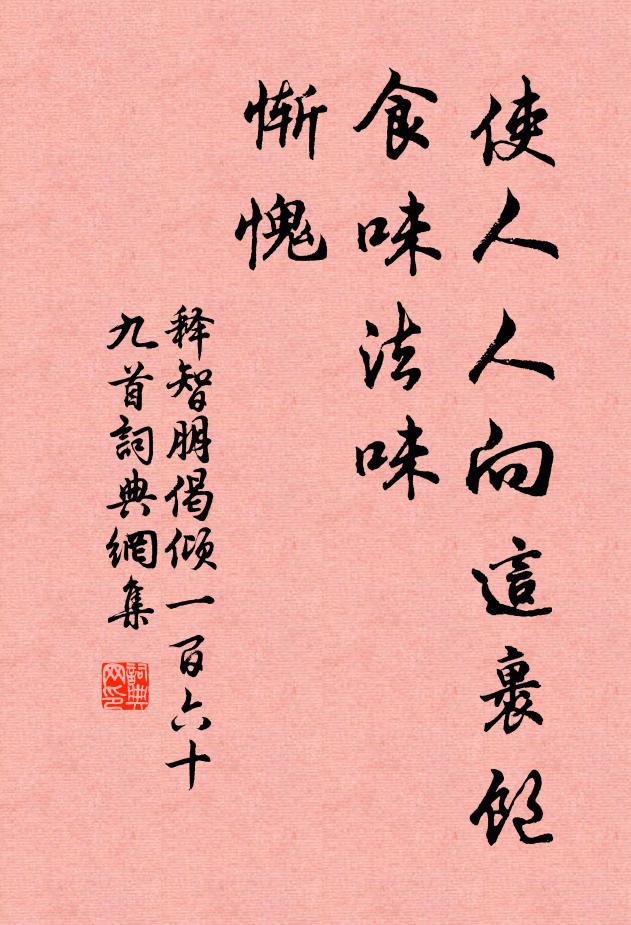 使人人向這裏飽
食味法味
慚愧
释智朋偈傾一百六十
九首詞典網集
詞典
网印